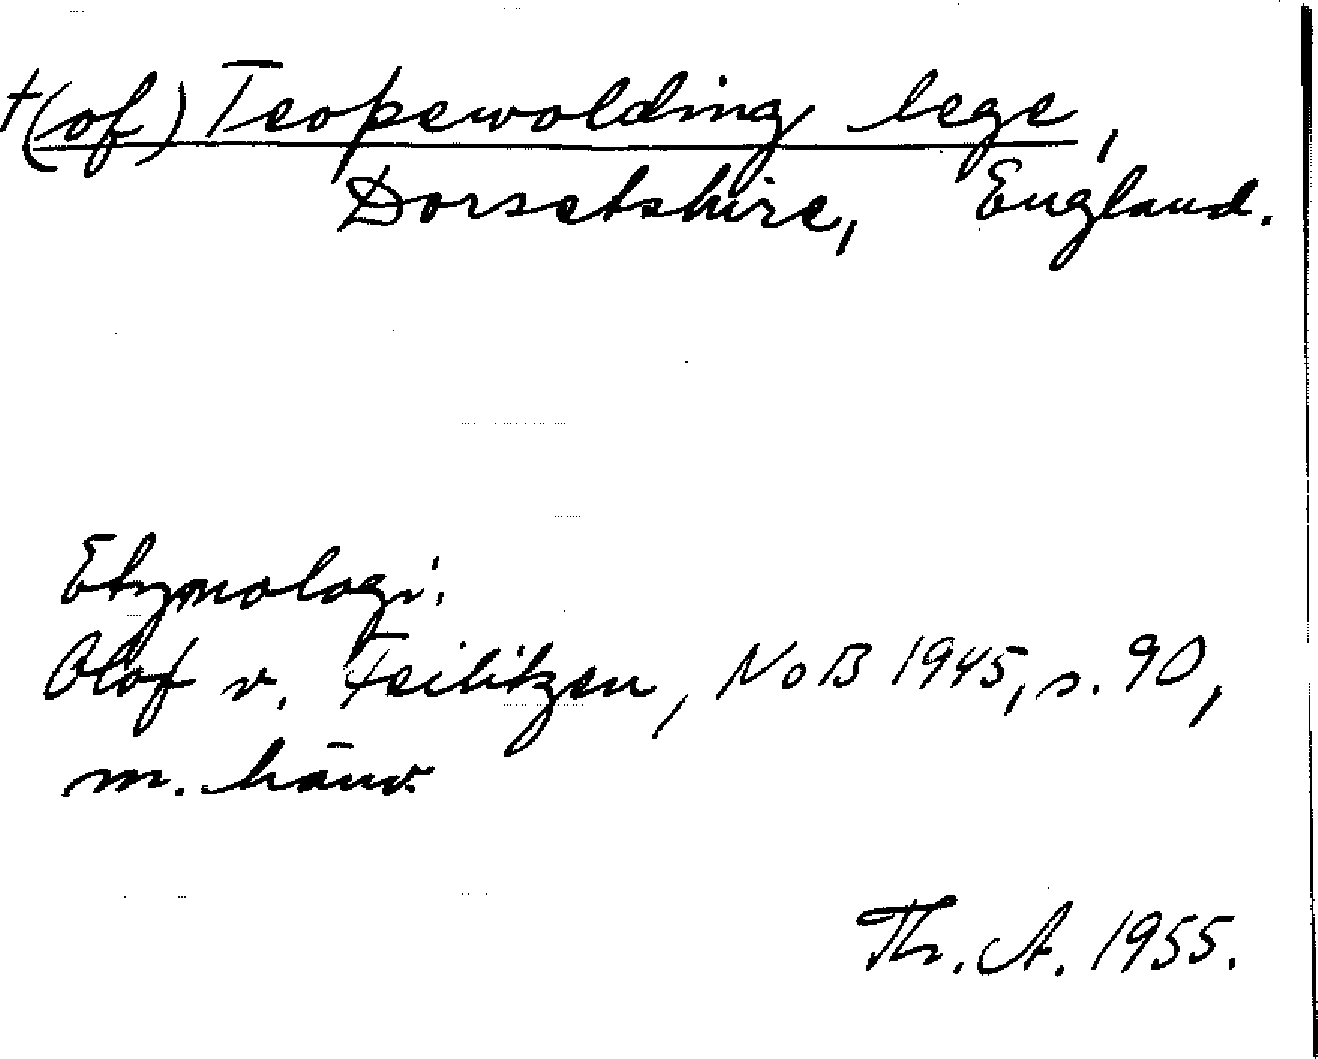 †(of) Teopewolding lege,
Dorsetshire, England.
Etymologi:
Olof v. Feilitzen, NoB 1945, s. 90,
m. hänv.
Th. A. 1955.